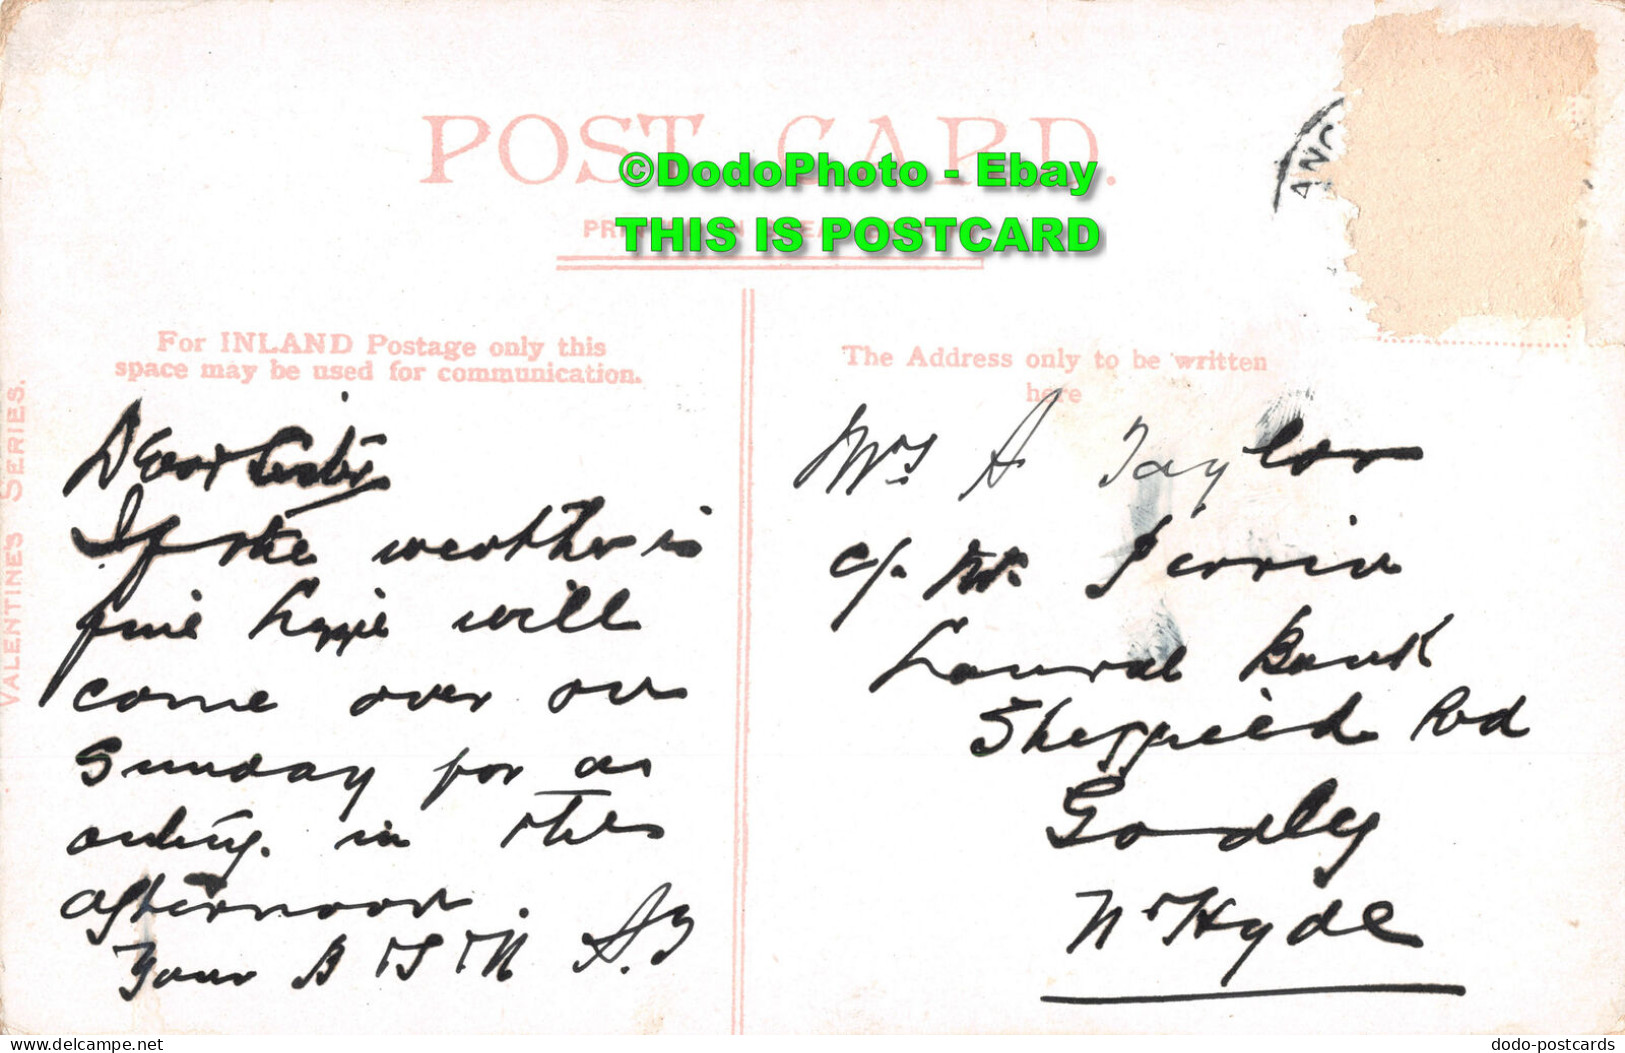 POST CARD.
©DodoPhoto - Ebay
THIS IS POSTCARD
For INLAND Postage only this
space may be used for communication.
The Address only to be written
here
VALENTINE'S SERIES.
Dear Sister
If the weather is
fine Lizzie will
come over on
Sunday for an
outing. in the
afternoon.
Your B
Mrs A Taylor
c/.
Perrin
Laurel Bank
Sheffield Rd
Godley
Nr Hyde
dodo-postcards
www.delcampe.net